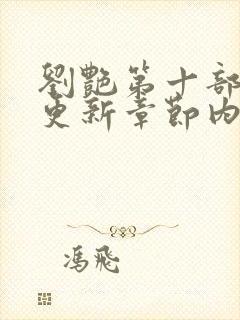 劉艷第十部
更新章節內
馮飛